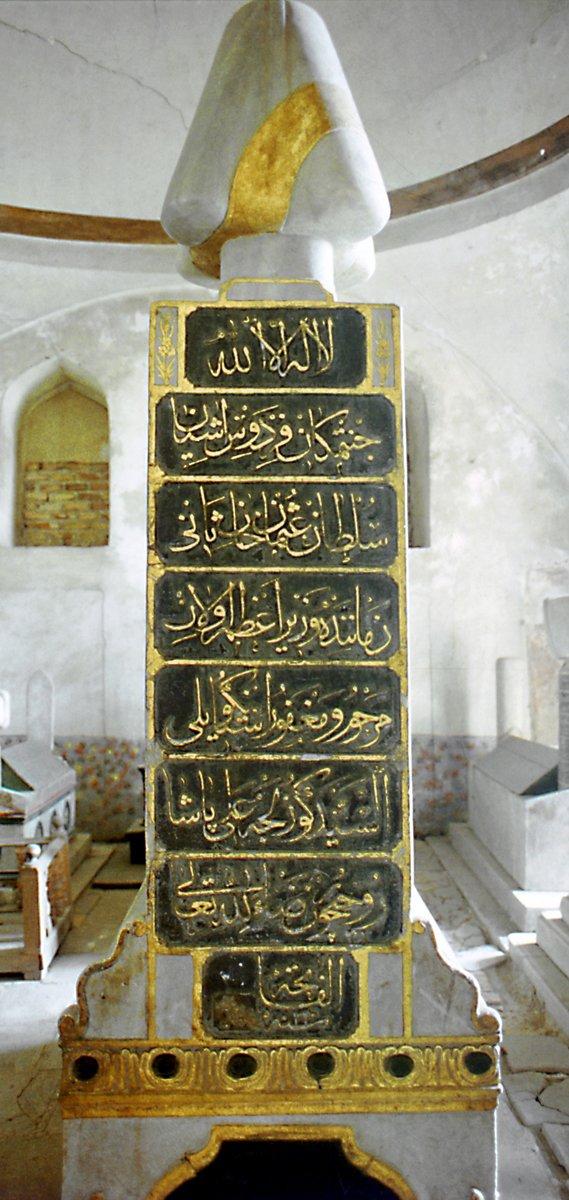 لا اله الا الله
جنتمكان فردوس آشيان
سلطان عثمان خان ثانى
زماننده وزير اعظم اولان
مرحوم و مغفور اينه كولى
السيد كوزلجه على پاشا
روحيچون رضاء لله تعالى
الفاتحة
سنة